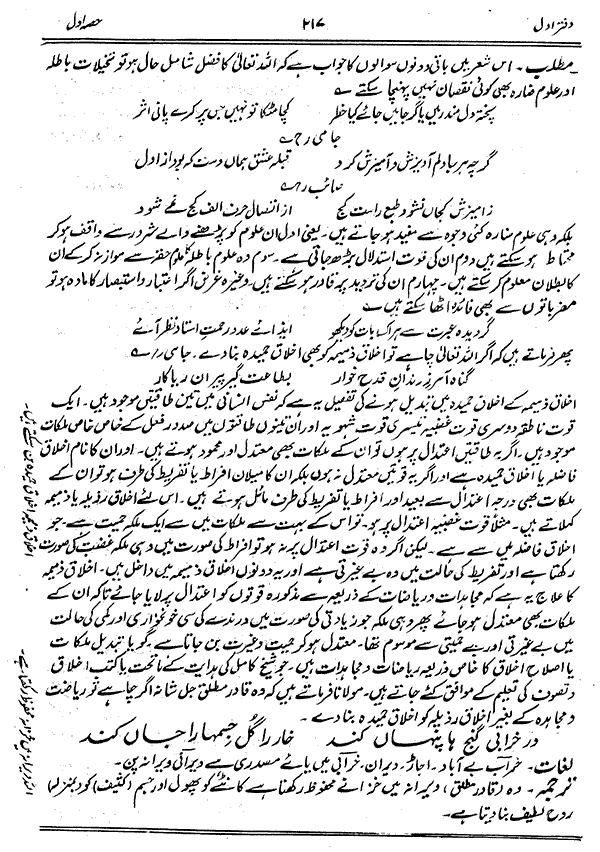 دفتر اول ۲۱۷ حصہ اول
مطلب۔ اس شعر میں باقی دونوں سوالوں کا جواب ہے کہ اللہ تعالیٰ کا فضل شامل حال ہو تو تخیلات باطلہ
اور علوم ضارہ بھی کوئی نقصان نہیں پہنچا سکتے ؎
پختہ دل مندر میں یا گرجا میں جائے کیا خطر کچا مٹکا تو نہیں جس پر کرے پانی اثر
جامی رح ؎
گرچہ ہر بادلم آویزش و آمیزش کرد قبلہ عشق ہماں دست کہ بود از اول
صائب رح ؎
ز آمیزش کجاں نشود طبع راست کج از اتصال حرف الف کج نمے شود
بلکہ وہی علوم ضارہ کئی وجوہ سے مفید ہو جاتے ہیں۔ یعنی اول ان علوم کو پڑھنے والے شرور سے واقف ہو کر
محتاط ہو سکتے ہیں دوم ان کی قوت استدلال بڑھ جاتی ہے۔ سوم وہ علوم باطلہ کا علوم حقہ سے موازنہ کر کے ان
کا بطلان معلوم کر سکتے ہیں۔ چہارم ان کی تردید پر قادر ہو سکتے ہیں۔ وغیرہ غرض اگر اعتبار و استبصار کا مادہ ہو تو
مضر باتوں سے بھی فائدہ اٹھا سکتے ہیں ؎
گر دیدہ عبرت سے ہر اک بات کو دیکھو ایذائے عدو رحمت استاد نظر آئے
پھر فرماتے ہیں کہ اگر اللہ تعالیٰ چاہے تو اخلاق ذمیمہ کو بھی اخلاق حمیدہ بنا دے۔ جامی رح ؎
گناہ آمرز رندان قدح خوار بطاعت گیر پیران ریا کار
اخلاق ذمیمہ کے اخلاق حمیدہ میں تبدیل ہونے کی تفصیل یہ ہے کہ نفس انسانی میں تین طاقتیں موجود ہیں۔ ایک
قوت ناطقہ دوسری قوت غضبیہ تیسری قوت شہویہ اور ان تینوں طاقتوں میں صدور فعل کے خاص خاص ملکات
موجود ہیں۔ اگر یہ طاقتیں اعتدال پر ہوں تو ان کے ملکات بھی معتدل اور محمود ہوتے ہیں۔ اور ان کا نام اخلاق
فاضلہ یا اخلاق حمیدہ ہے اور اگر یہ قوتیں معتدل نہ ہوں بلکہ ان کا میلان افراط یا تفریط کی طرف ہو تو ان کے
ملکات بھی درجہ اعتدال سے بعید اور افراط یا تفریط کی طرف مائل ہوتے ہیں۔ اس لئے اخلاق رذیلہ یا ذمیمہ
کہلاتے ہیں۔ مثلاً قوت غضبیہ اعتدال پر ہو۔ تو اس کے بہت سے ملکات میں سے ایک ملکہ حمیت ہے۔ جو
اخلاق فاضلہ میں سے ہے۔ لیکن اگر وہ قوت اعتدال پر نہ ہو تو افراط کی صورت میں وہی ملکہ غضب کی صورت
رکھتا ہے اور تفریط کی حالت میں وہ بے غیرتی ہے اور یہ دونوں اخلاق ذمیمہ میں داخل ہیں۔ اخلاق ذمیمہ
کا علاج یہ ہے کہ مجاہدات و ریاضات کے ذریعہ سے مذکورہ قوتوں کو اعتدال پر لایا جائے تاکہ ان کے
ملکات بھی معتدل ہو جائے پھر وہی ملکہ جو زیادتی کی صورت میں درندے کی سی خونخواری اور کمی کی حالت
میں بے غیرتی اور بے حمیتی سے موسوم تھا۔ معتدل ہو کر حمیت و غیرت بن جاتا ہے۔ گویا تبدیل ملکات
یا اصلاح اخلاق کا خاص ذریعہ ریاضات و مجاہدات ہیں۔ جو شیخ کامل کی ہدایت کے ماتحت یا کتب اخلاق
و تصوف کی تعلیم کے موافق کئے جاتے ہیں۔ مولانا فرماتے ہیں کہ وہ قادر مطلق جل شانہ اگر چاہے تو ریاضت
و مجاہدہ کے بغیر اخلاق رذیلہ کو اخلاق حمیدہ بنا دے۔
در خرابی گنج ہا پنہاں کند خار را گل جسمہا را جاں کند
لغات۔ خراب بے آباد۔ اجاڑ۔ ویران۔ خرابی میں یائے مصدری ہے ویرانی ویرانہ پن۔
ترجمہ۔ وہ (قادر مطلق) ویرانہ میں خزانے محفوظ رکھتا ہے کانٹے کو پھول اور جسم (کثیف) کو (بمنزلہ)
روح لطیف بنا دیتا ہے۔